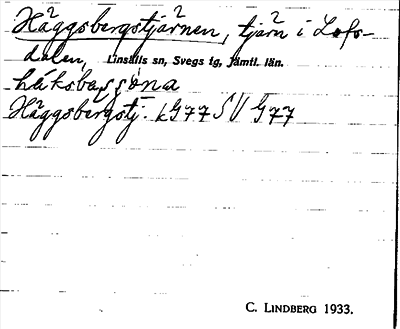 Häggsbergstjärnen, tjärn i Lofs-
dalen, Linsälls sn, Svegs tg, Jämtl. län.
Häggsbergstj. LG77 SV G77
C. LINDBERG 1933.